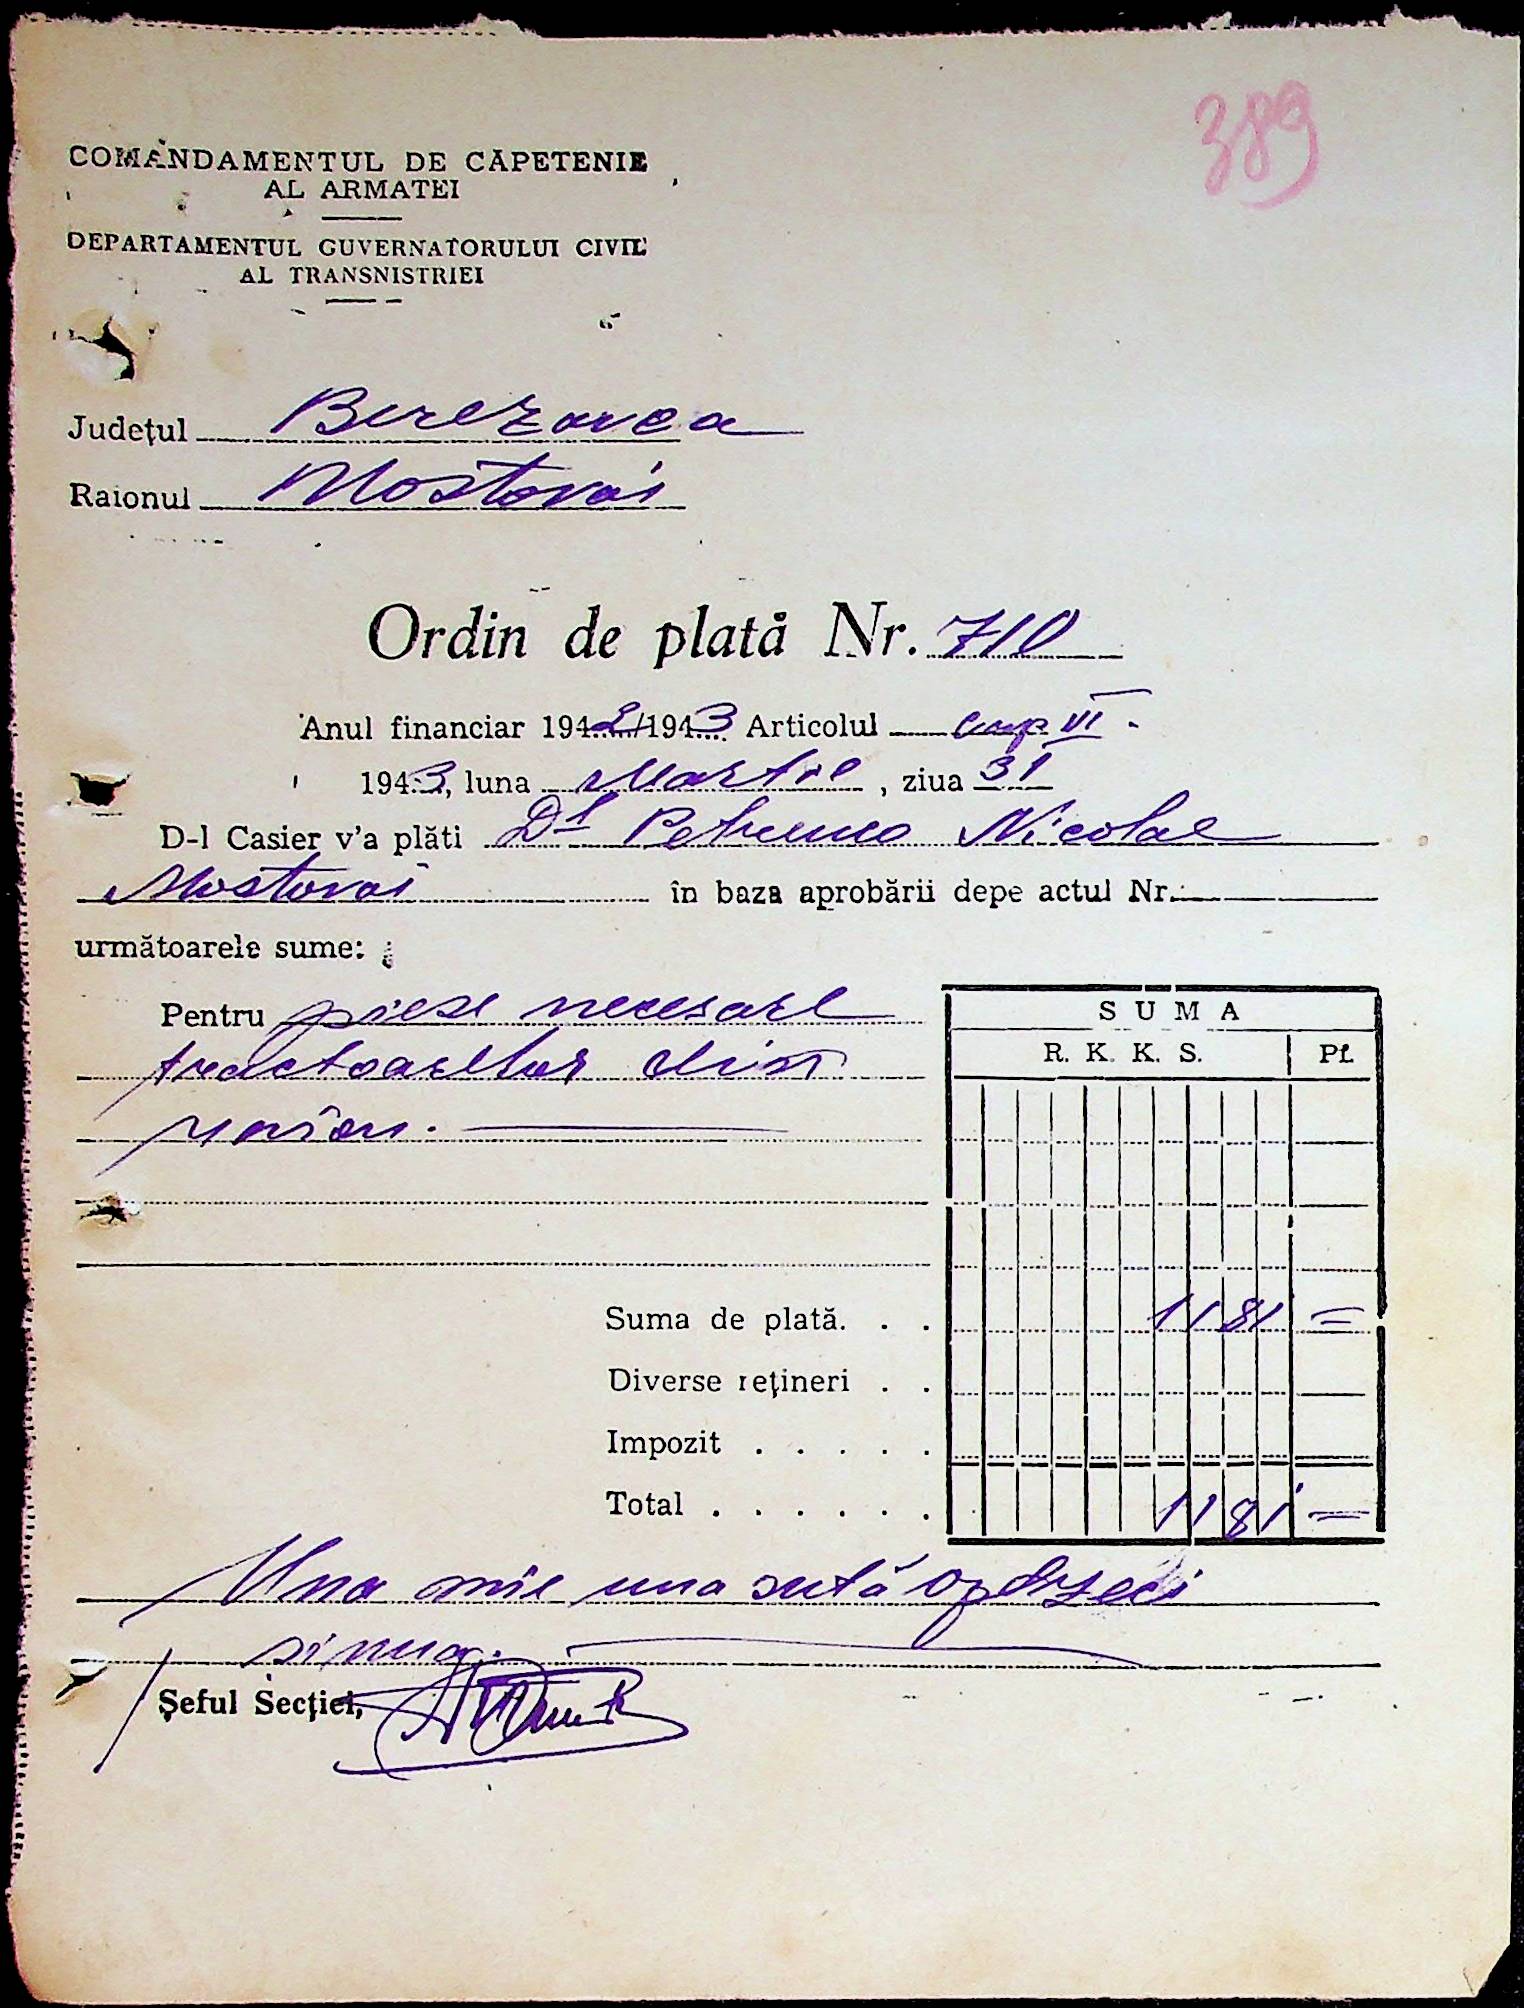 389
COMANDAMENTUL DE CĂPETENIE
AL ARMATEI
DEPARTAMENTUL GUVERNATORULUI CIVIL
AL TRANSNISTRIEI
Județul Berezovca
Raionul Mostovoi
Ordin de plată Nr. 710
Anul financiar 1942/1943 Articolul cap VI.
1943, luna Martie, ziua 31
D-l Casier v'a plăti Dl Petrenco Nicolae
Mostovoi în baza aprobării depe actul Nr.
următoarele sume:
Pentru piese necesare
tractoarelor din
raion.
SUMA
R. K. K. S. Pf.
Suma de plată. . . 1181 =
Diverse rețineri . .
Impozit . . . . .
Total . . . . . . 1181 =
Una mie una sută optzeci
și una.
Șeful Secției,